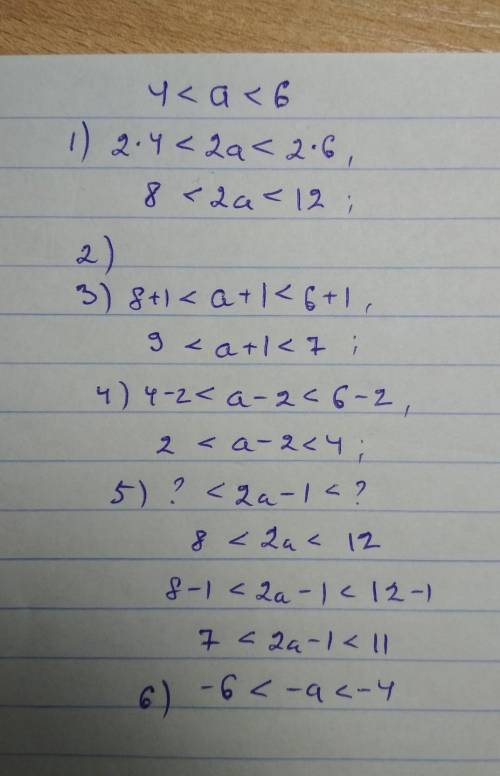 4 < a < 6
1) 2·4 < 2a < 2·6,
8 < 2a < 12 ;
2)
3) 8+1 < a+1 < 6+1,
9 < a+1 < 7 ;
4) 4-2 < a-2 < 6-2,
2 < a-2 < 4;
5) ? < 2a-1 < ?
8 < 2a < 12
8-1 < 2a-1 < 12-1
7 < 2a-1 < 11
6) -6 < -a < -4